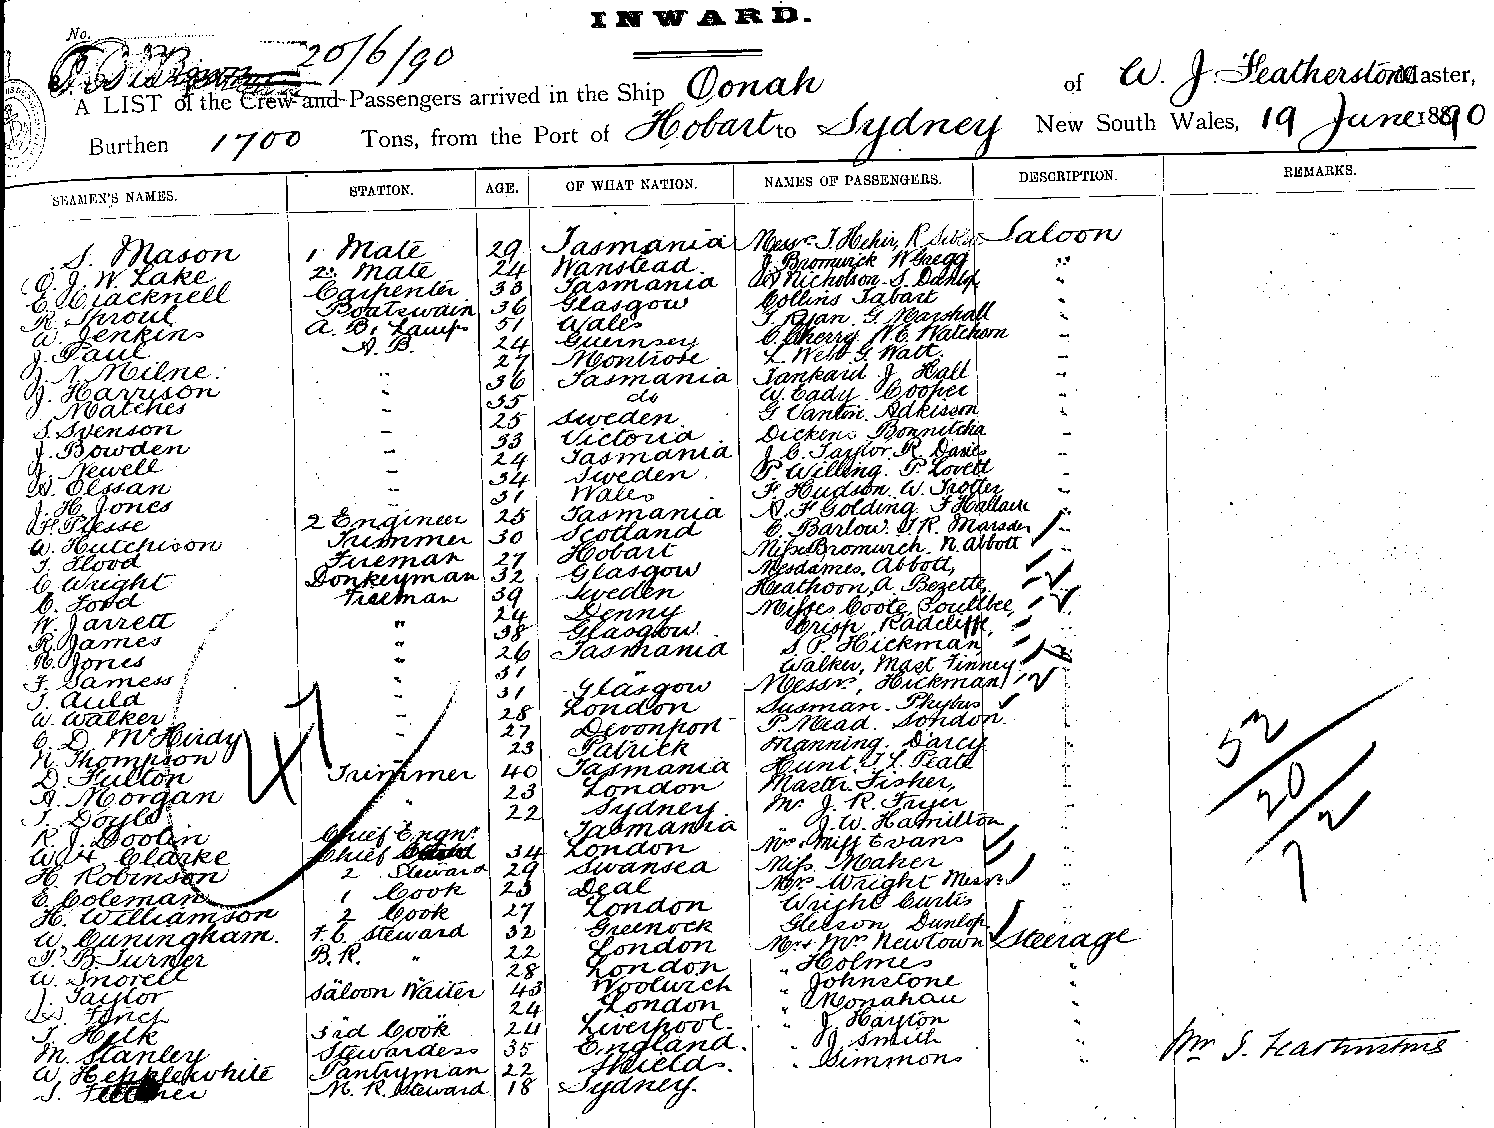 INWARD.
No.
20/6/90
A LIST of the Crew and Passengers arrived in the Ship Oonah of W. J. Featherstone Master,
Burthen 1700 Tons, from the Port of Hobart to Sydney New South Wales, 19 June 1890
SEAMEN'S NAMES. STATION. AGE. OF WHAT NATION. NAMES OF PASSENGERS. DESCRIPTION. REMARKS.
S. Mason 1 Mate 29 Tasmania Messrs T. Hehir, R Saloon
J. W. Lake 2 Mate 24 Wanstead. J. Bromwick W Gregg "
E Cracknell Carpenter 33 Tasmania Nicholson. S. Dunlop "
R. Sproul Boatswain 36 Glasgow Collins Tabart "
W. Jenkins A. B. Lamps 51 Wales T. Ryan. G. Marshall "
J. Paul A. B. 24 Guernsey C Cherry W. C. Watchorn "
J. N. Milne. " 27 Montrose L. West G. Watt. "
J. Harrison " 36 Tasmania Tankard J Hall "
J. Matches " 35 do W. Eady Cooper "
S. Svenson " 25 Sweden. G Vantin. Adkisson "
J. Bowden " 33 Victoria Dickens Bonnitcha "
J. Newell " 24 Tasmania J. C. Taylor. R. Davies "
A. Olssan " 34 Sweden. P. Willing. P. Lovett "
J. H. Jones " 31 Wales F. Hudson. W. Trotter "
F. Piesse 2 Engineer 25 Tasmania A. F. Golding. F Hallam "
W. Hutchison Trimmer 30 Scotland C. Barlow. R. Marsden "
T. Flood Fireman 27 Hobart Miss Bromwich. N. Abbott "
C. Wright Donkeyman 32 Glasgow Mesdames. Abbott, "
C. Ford Fireman 39 Sweden Heathoon, A. Bezette, "
W. Jarrett " 24 Denny Misses Coote, Soultbee, "
R. James " 38 Glasgow. Crisp, Radcliffe, "
H. Jones " 26 Tasmania S. P. Hickman, "
F. Samess " 31 " Walker, Mast Finney "
T. Auld " 31 Glasgow Messrs, Hickman "
W. Walker " 28 London Susman. Phybus "
C. D. McHirdy " 27 Devonport P. Mead. London. "
N. Thompson " 23 Patrick Manning. D'arcy "
D. Fulton Trimmer 40 Tasmania Hunt. T. L. Peate "
A. Morgan " 23 London Master. Fisher, "
T. Doyle " 22 Sydney. Mr J. R. Fryer "
R. J. Doolin Chief Engnr. Tasmania " J. W. Hamilton "
W. H. Clarke Chief 34 London Mrs. Miss Evans "
H. Robinson 2 Steward 29 Swansea Miss Maher "
E Coleman 1 Cook 23 Deal Mrs Wright Messrs "
H. Williamson 2 Cook 27 London Wright Curtis
W. Cuningham. F. C. Steward 32 Greenock Gleeson Dunlop
P. B. Turner B. R. " 22 London Mr & Mrs Newtown Steerage
W. Snorell " 28 London " Holmes "
J. Taylor Saloon Waiter 43 Woolwich " Johnstone "
Finch " 24 London " Monahan "
T. Hilk 3rd Cook 24 Liverpool. " J Hayton "
M. Stanley Stewardess 35 England. " J. Smith "
W. Hepplewhite Pantryman 22 Shields. " Simmons "
S. Fletcher M. R. Steward 18 Sydney.
47
52
20
2
7